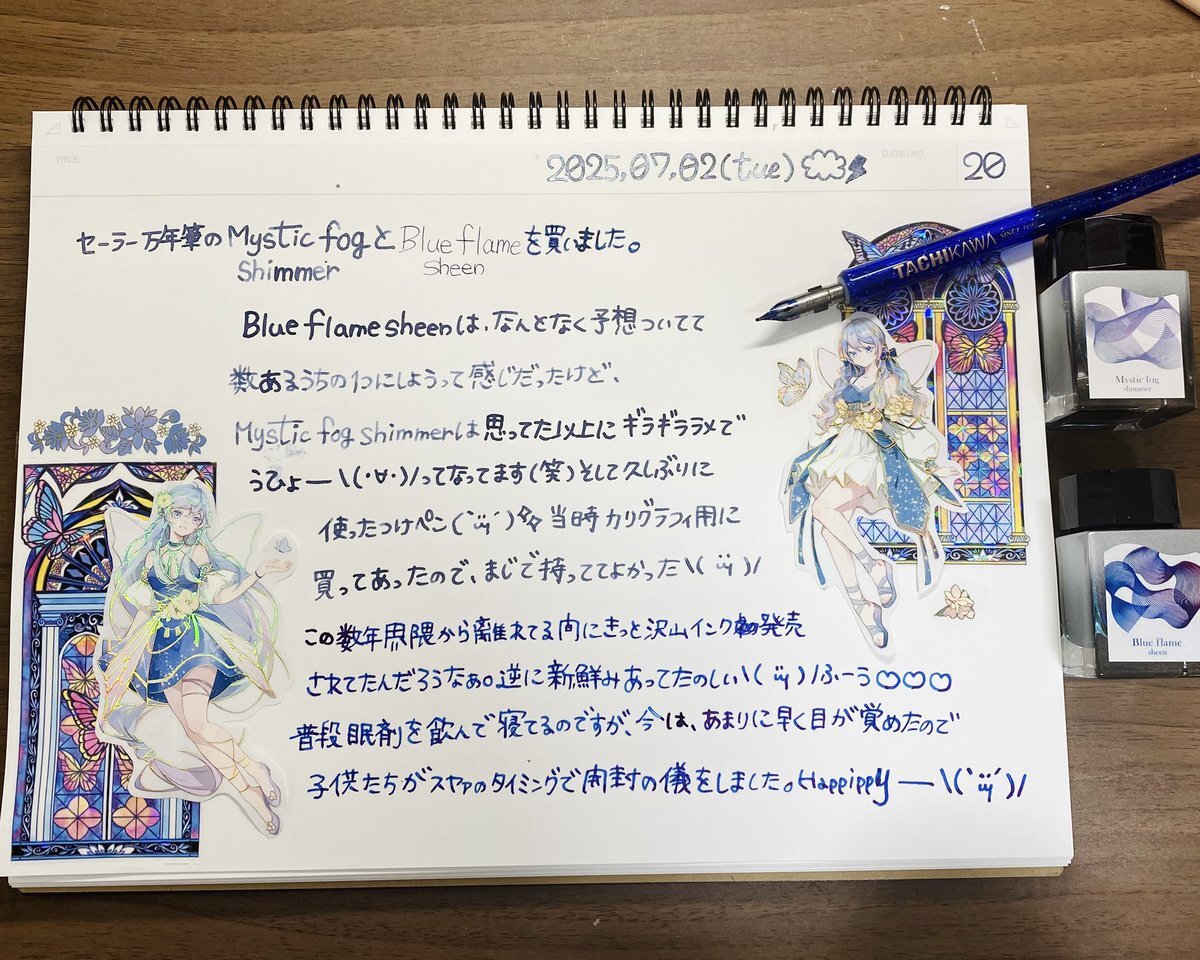 TITLE:
2025.07.02(tue)
DATE/NO.
20
セーラー万年筆のMystic fogとBlue flameを買いました。
shimmer sheen
Blue flame sheenは、なんとなく予想ついてて
数あるうちの1つにしようって感じだったけど、
Mystic fog shimmerは思ってた以上にギラギララメで
うひょー\(·∀·)/ってなってます(笑)そして久しぶりに
使ったつけペン(¨̮)当時カリグラフィ用に
買ってあったので、まじで持っててよかった\(¨̮)/
この数年界隈から離れてる間にきっと沢山インク発売
されてたんだろうなぁ。逆に新鮮みあってたのしい\(¨̮)/ふーう♡♡♡
普段眠剤を飲んで寝てるのですが、今は、あまりに早く目が覚めたので
子供たちがスヤァのタイミングで開封の儀をしました。Happippyー\(¨̮)/
TACHIKAWA
Mystic fog
shimmer
Blue flame
sheen